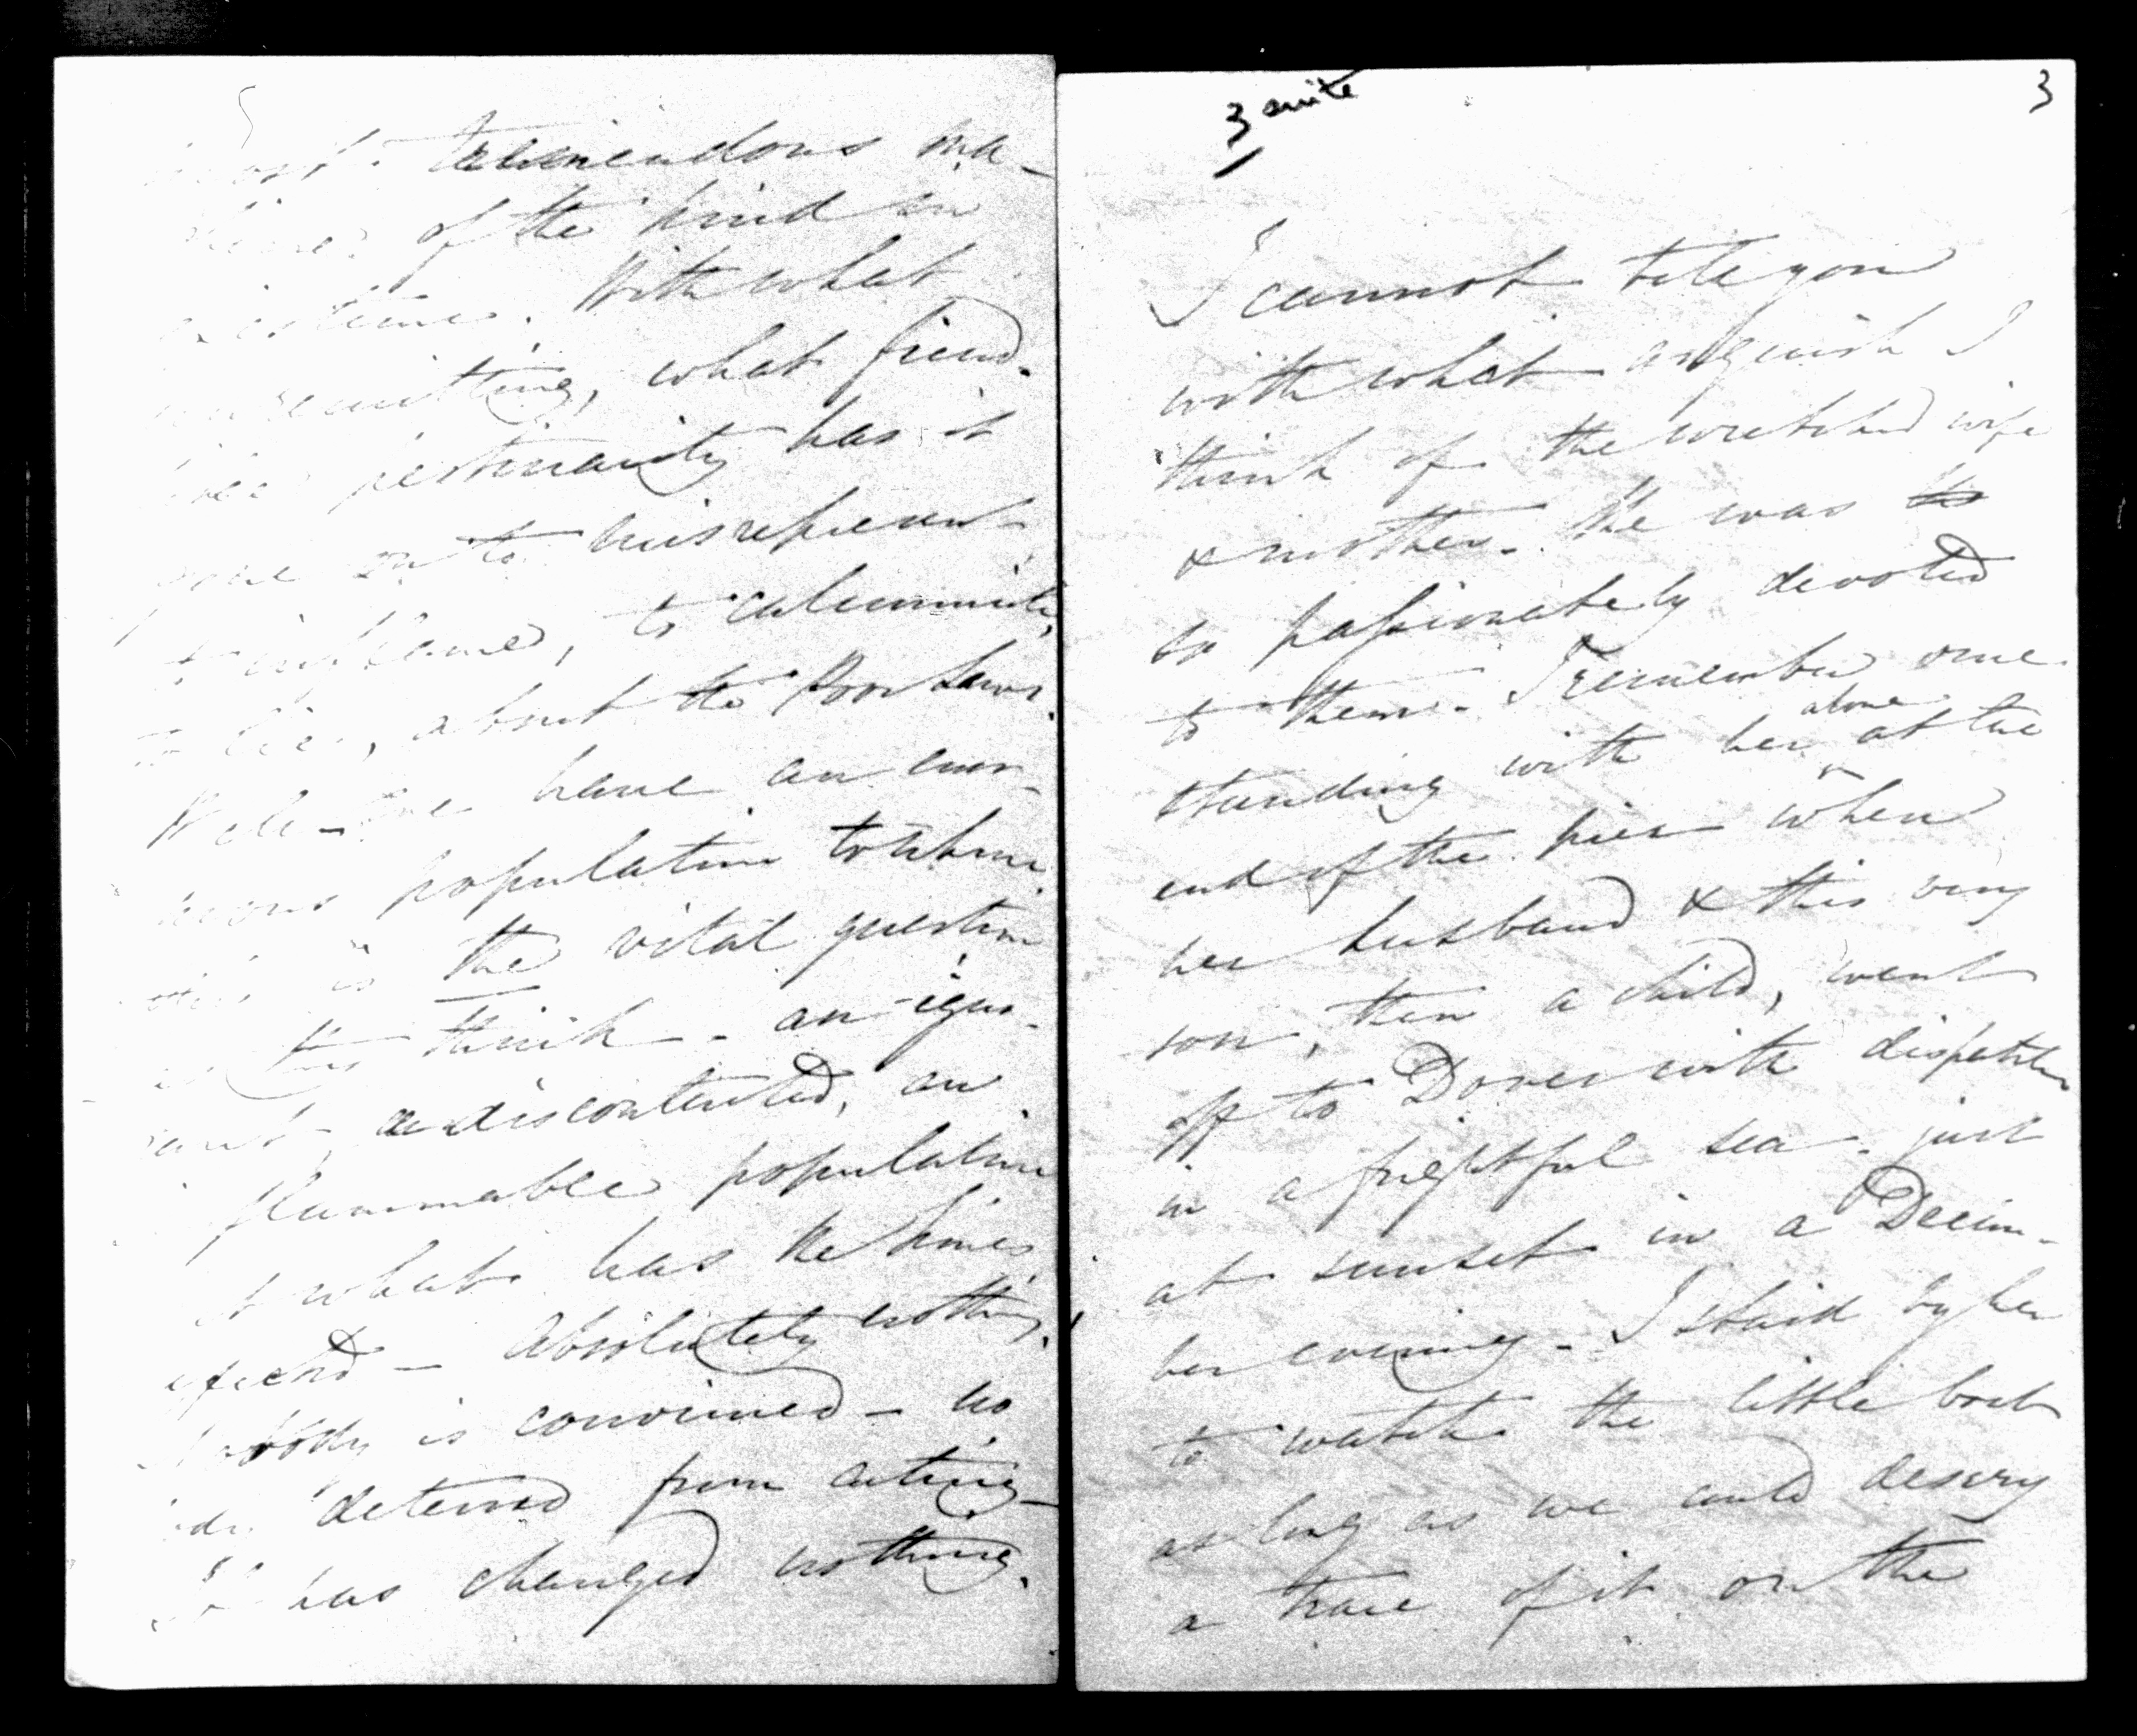 5
most tremendous ma-
chines of the kind in
existence. With what
unremitting, what fiend-
like pertinacity has it
gone on to misrepresent
to inflame, to calumniate,
to lie, about the Poor Laws.
Well – we have an enor-
mous population to whom
this is the vital question
as they think – an igno-
rant, a discontented, an
flammable population
& what has the Times
effected – Absolutely nothing.
Nobody is convinced – no
body deterred from acting –
It has changed nothing.
3 suite
3
I cannot tell you
with what anguish I
think of the wretched wife
& mother. She was
so passionately devoted
to them. I remember once
standing with her alone at the
end of the pier when
her husband & this very
son, then a child, went
off to Dover with dispatches
in a frightful sea – just
at sunset in a Decem-
ber evening – I staid by her
to watch the little boat
as long as we could descry
a trace of it on the